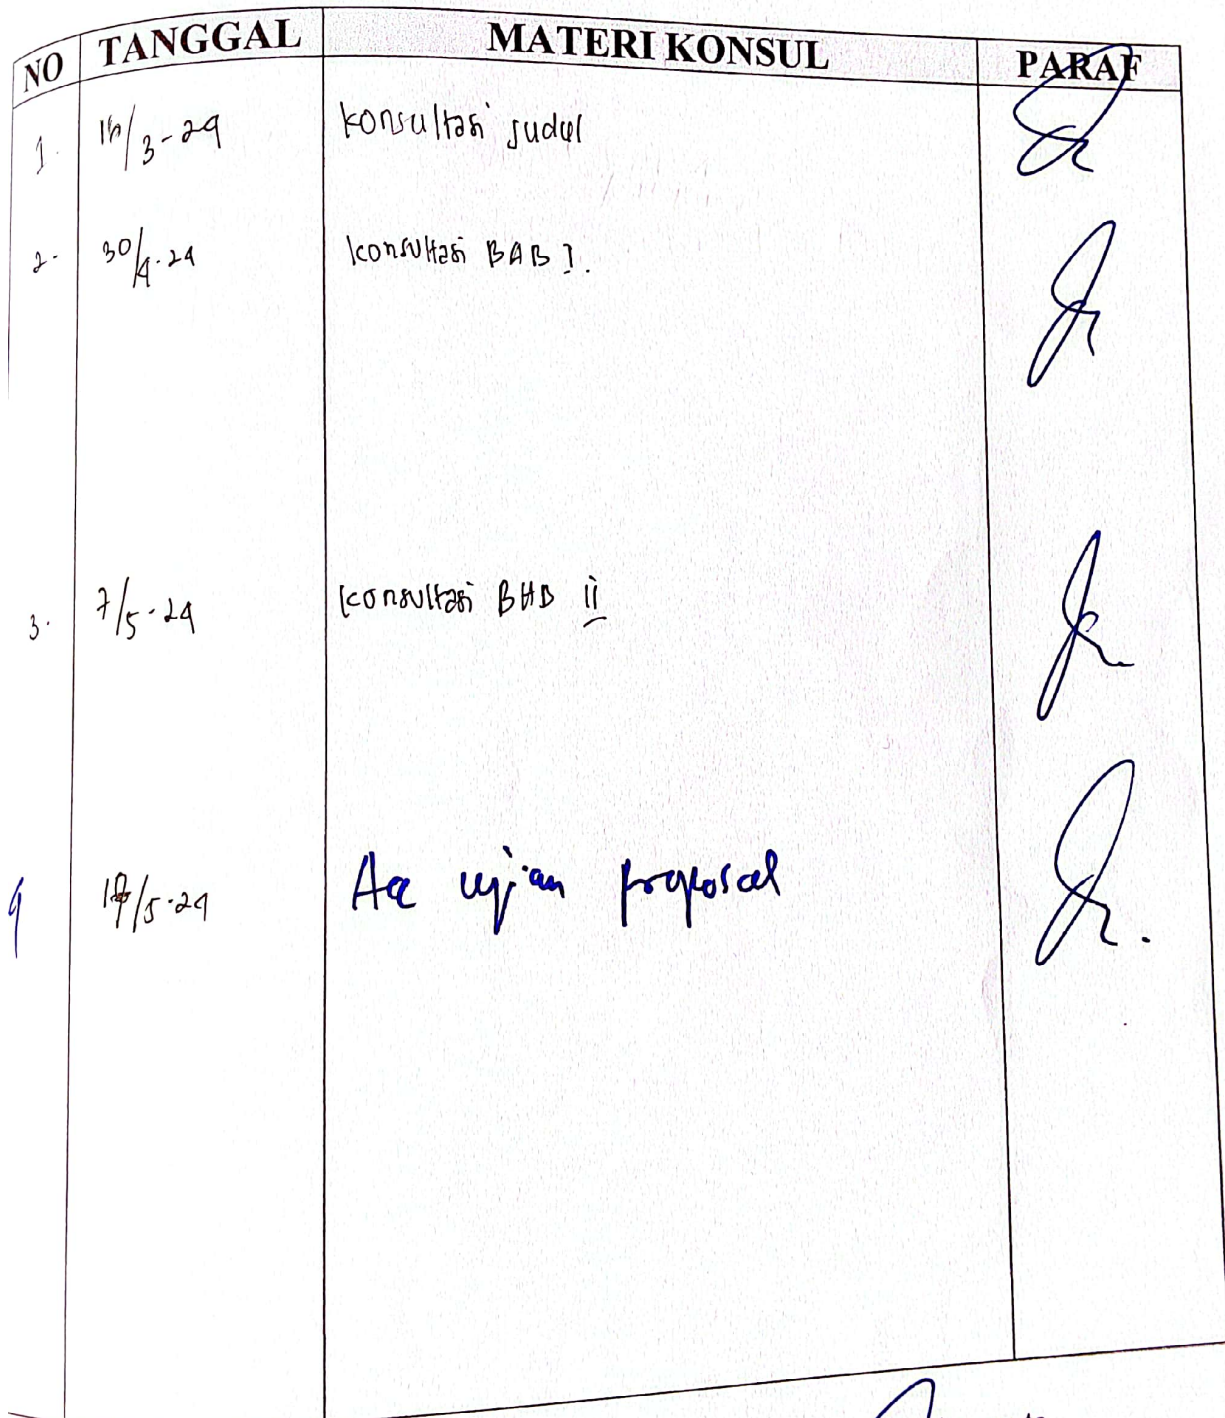 NO TANGGAL MATERI KONSUL PARAF
1. 16/3-24 konsultasi judul
2. 30/4-24 konsultasi BAB I.
3. 7/5-24 konsultasi BAB II
4 /5-24 Acc ujian proposal